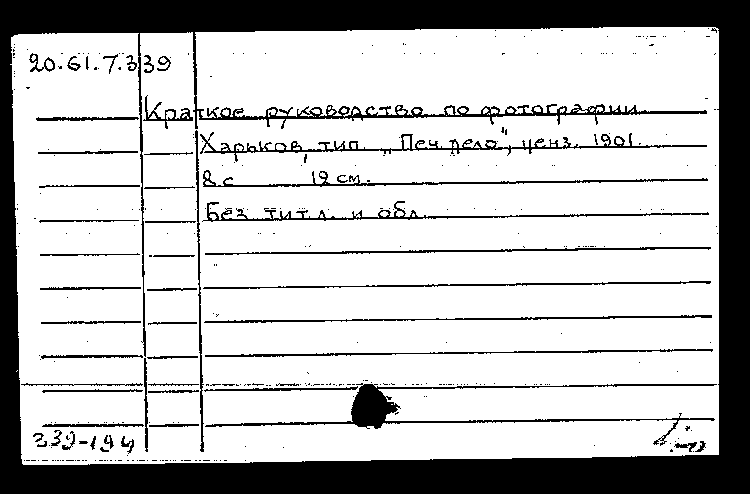 20.61.7.339
Краткое руководство по фотографии
Харьков, тип. „Печ. дело", ценз. 1901.
8 с 12 см.
Без тит. л. и обл.
239-194